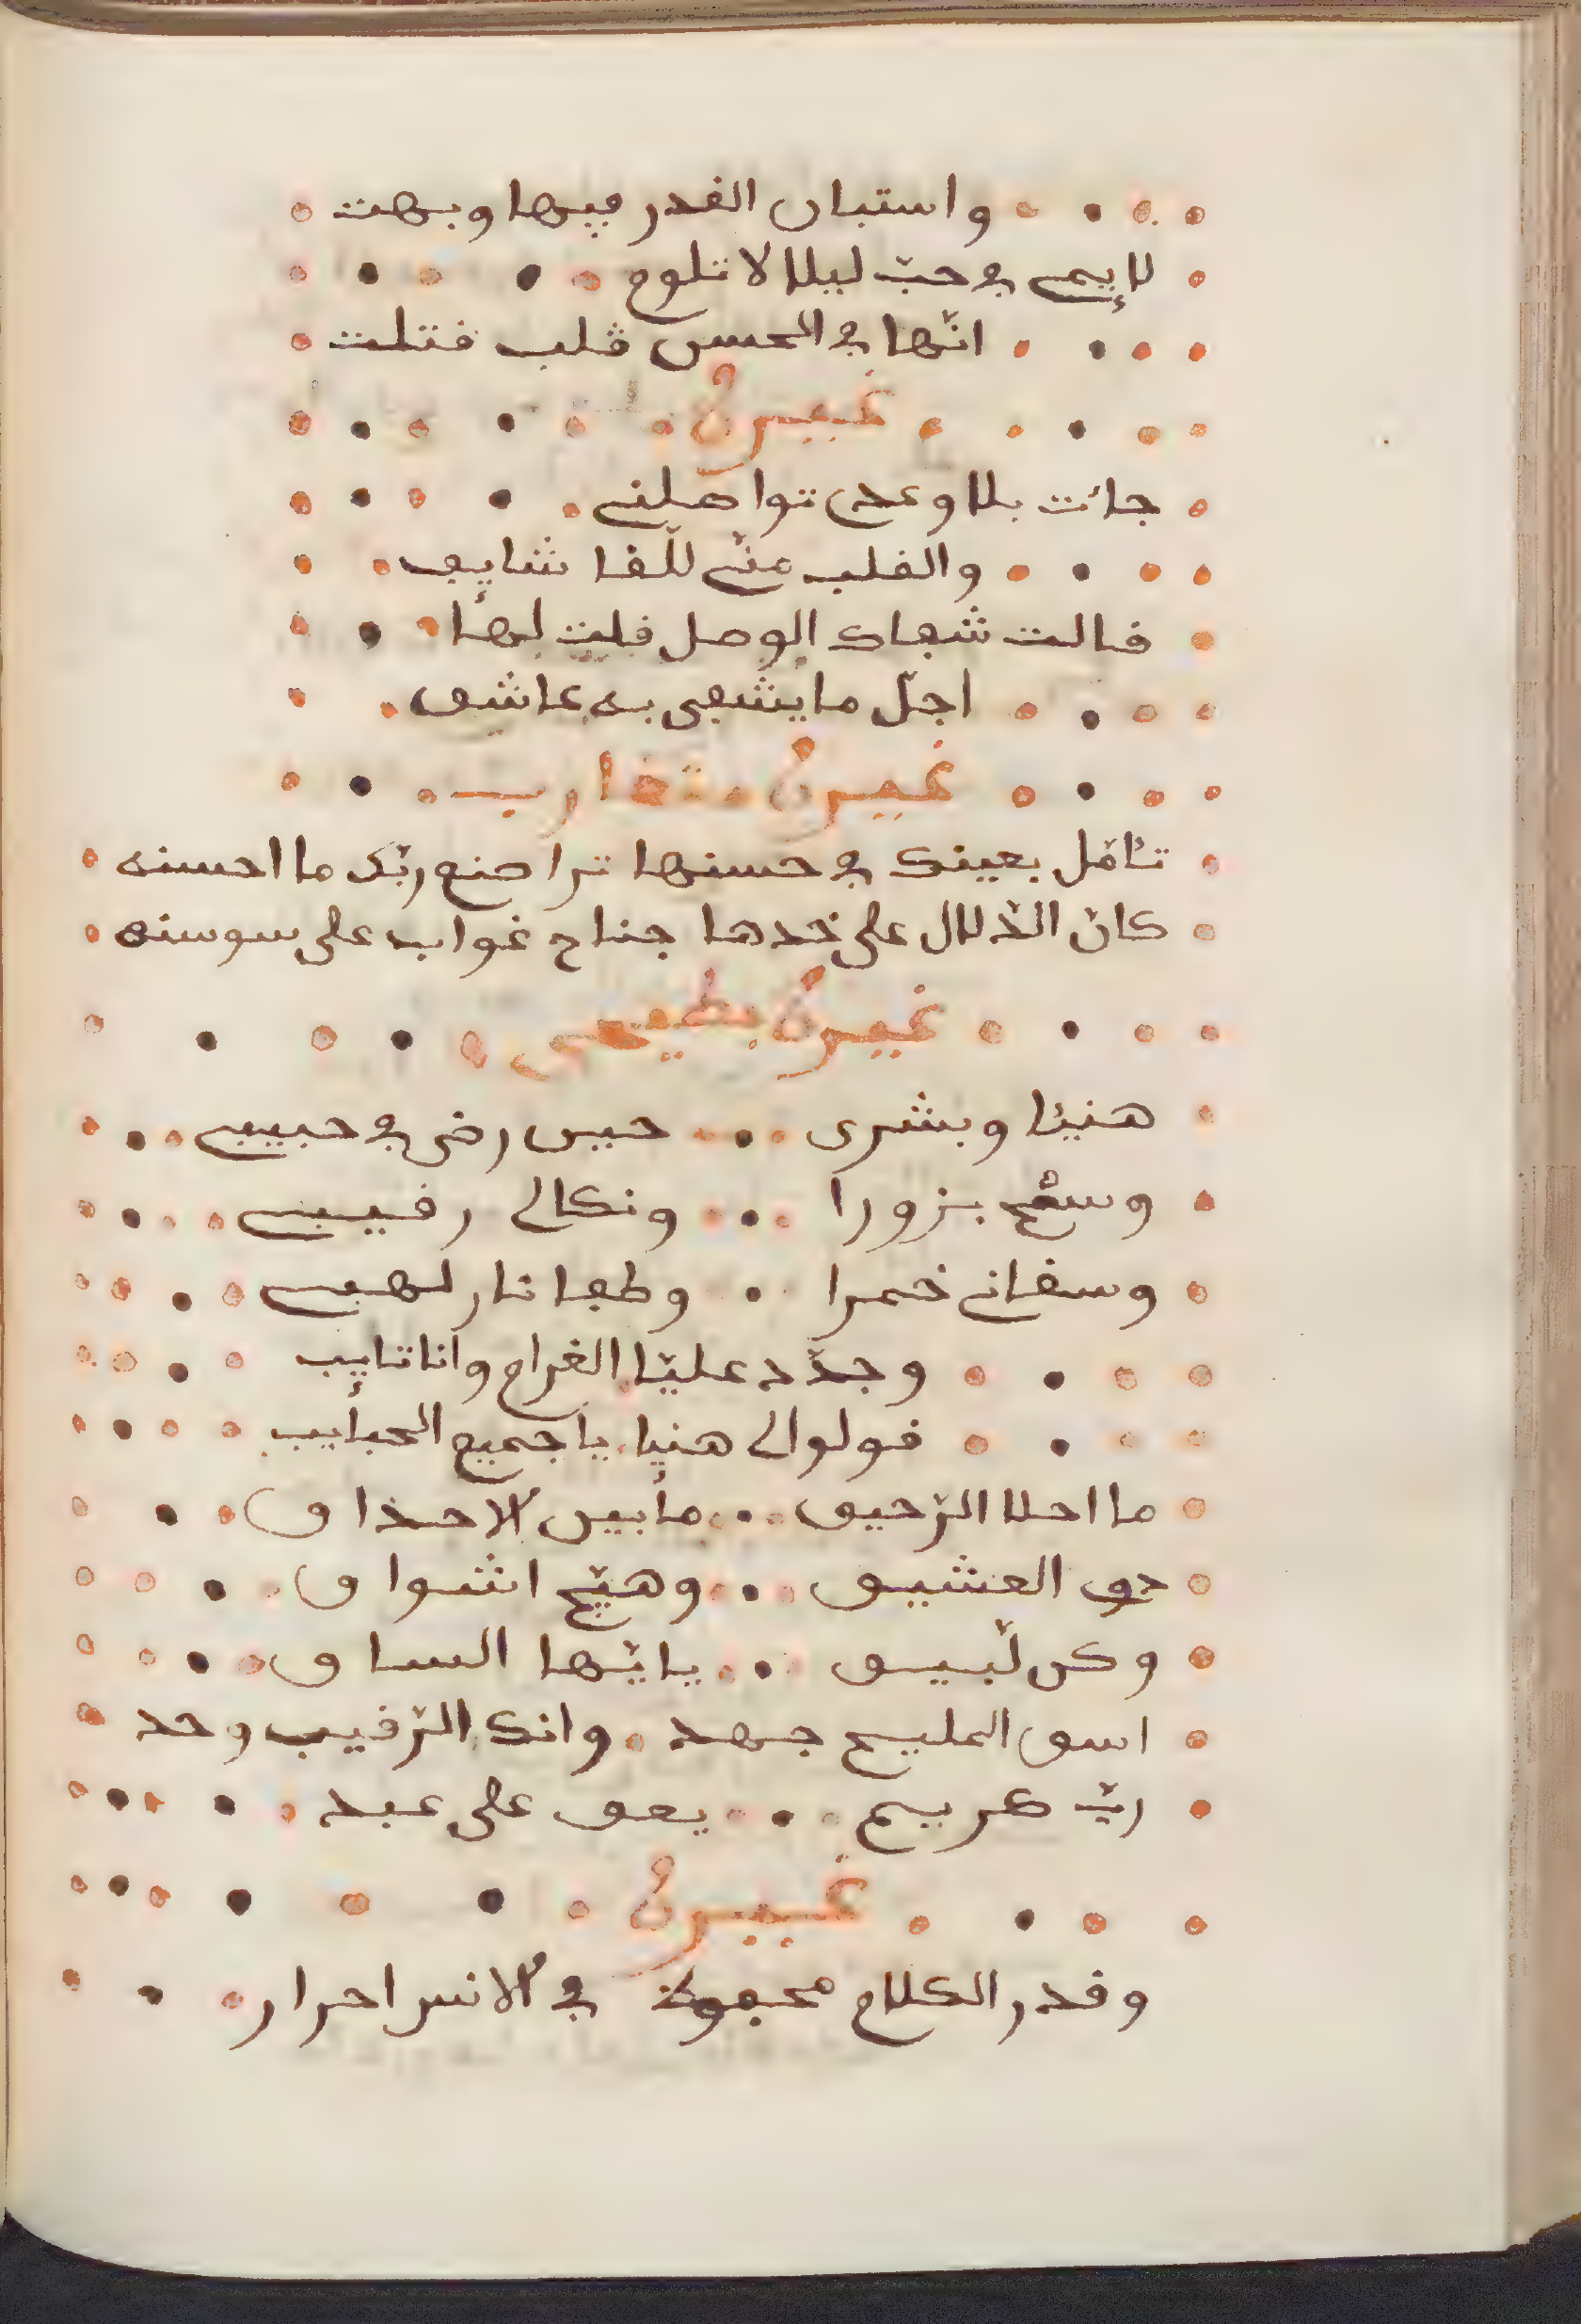 واستبان الغدر فيها وبهت
لايمي في حب ليلا لا تلوم
انّها في الحسن قلبي قتلت
غيره
جائت بلا وعد تواصلني
والقلب منّي للّقا شايق
قالت شفاك الوصل قلت لها
اجلّ ما يشفى به عاشق
غيره متقارب
تئامّل بعينك في حسنها ترا صنع ربّك ما احسنه
كان الدّلال على خدها جناح غراب على سوسنه
غيره بطيحي
هنيئا وبشرى حين رضى في حبيبي
وسمّح بزورا ونكالي رقيبي
وسقاني خمرا وطفا نار لهيبي
وجدّد عليّا الغرام وانا تايب
قولوا لي هنيا يا جميع الحبايب
ما احلا الرّحيق ما بين الاحداق
دوق العشيق وهيّج اشواق
وكن لّبيق يايّها الساق
اسق المليح جهد وانك الرّقيب وحد
ربّ كريم يعف على عبد
غيره
وقدر الكلام محبوك في الانس احرار